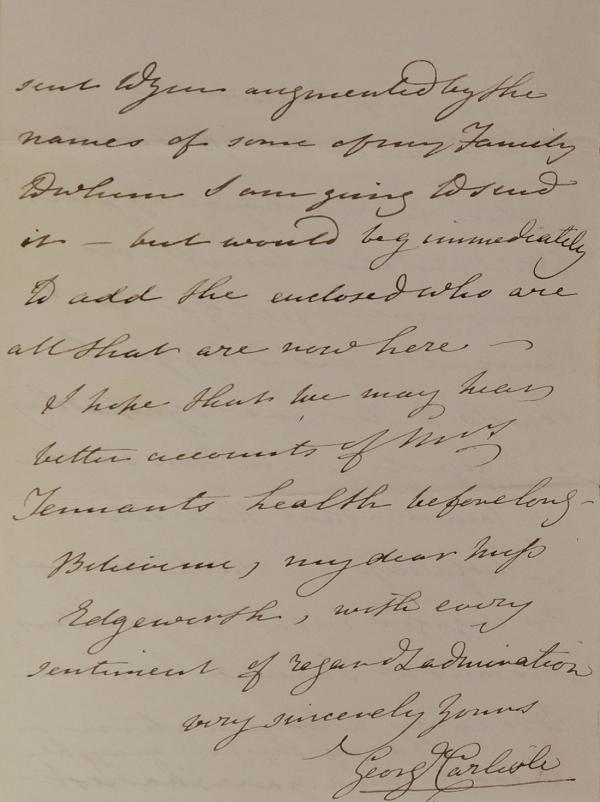 sent to you augmented by the
names of some of my Family
to whom I am going to send
it – but would beg immediately
to add the enclosed who are
all that are now here –
I hope that we may hear
better accounts of Mrs
Tennants health before long –
Believe me, my dear Miss
Edgeworth, with every
sentiment of regard & admiration
very sincerely yours
Georg Carlisle